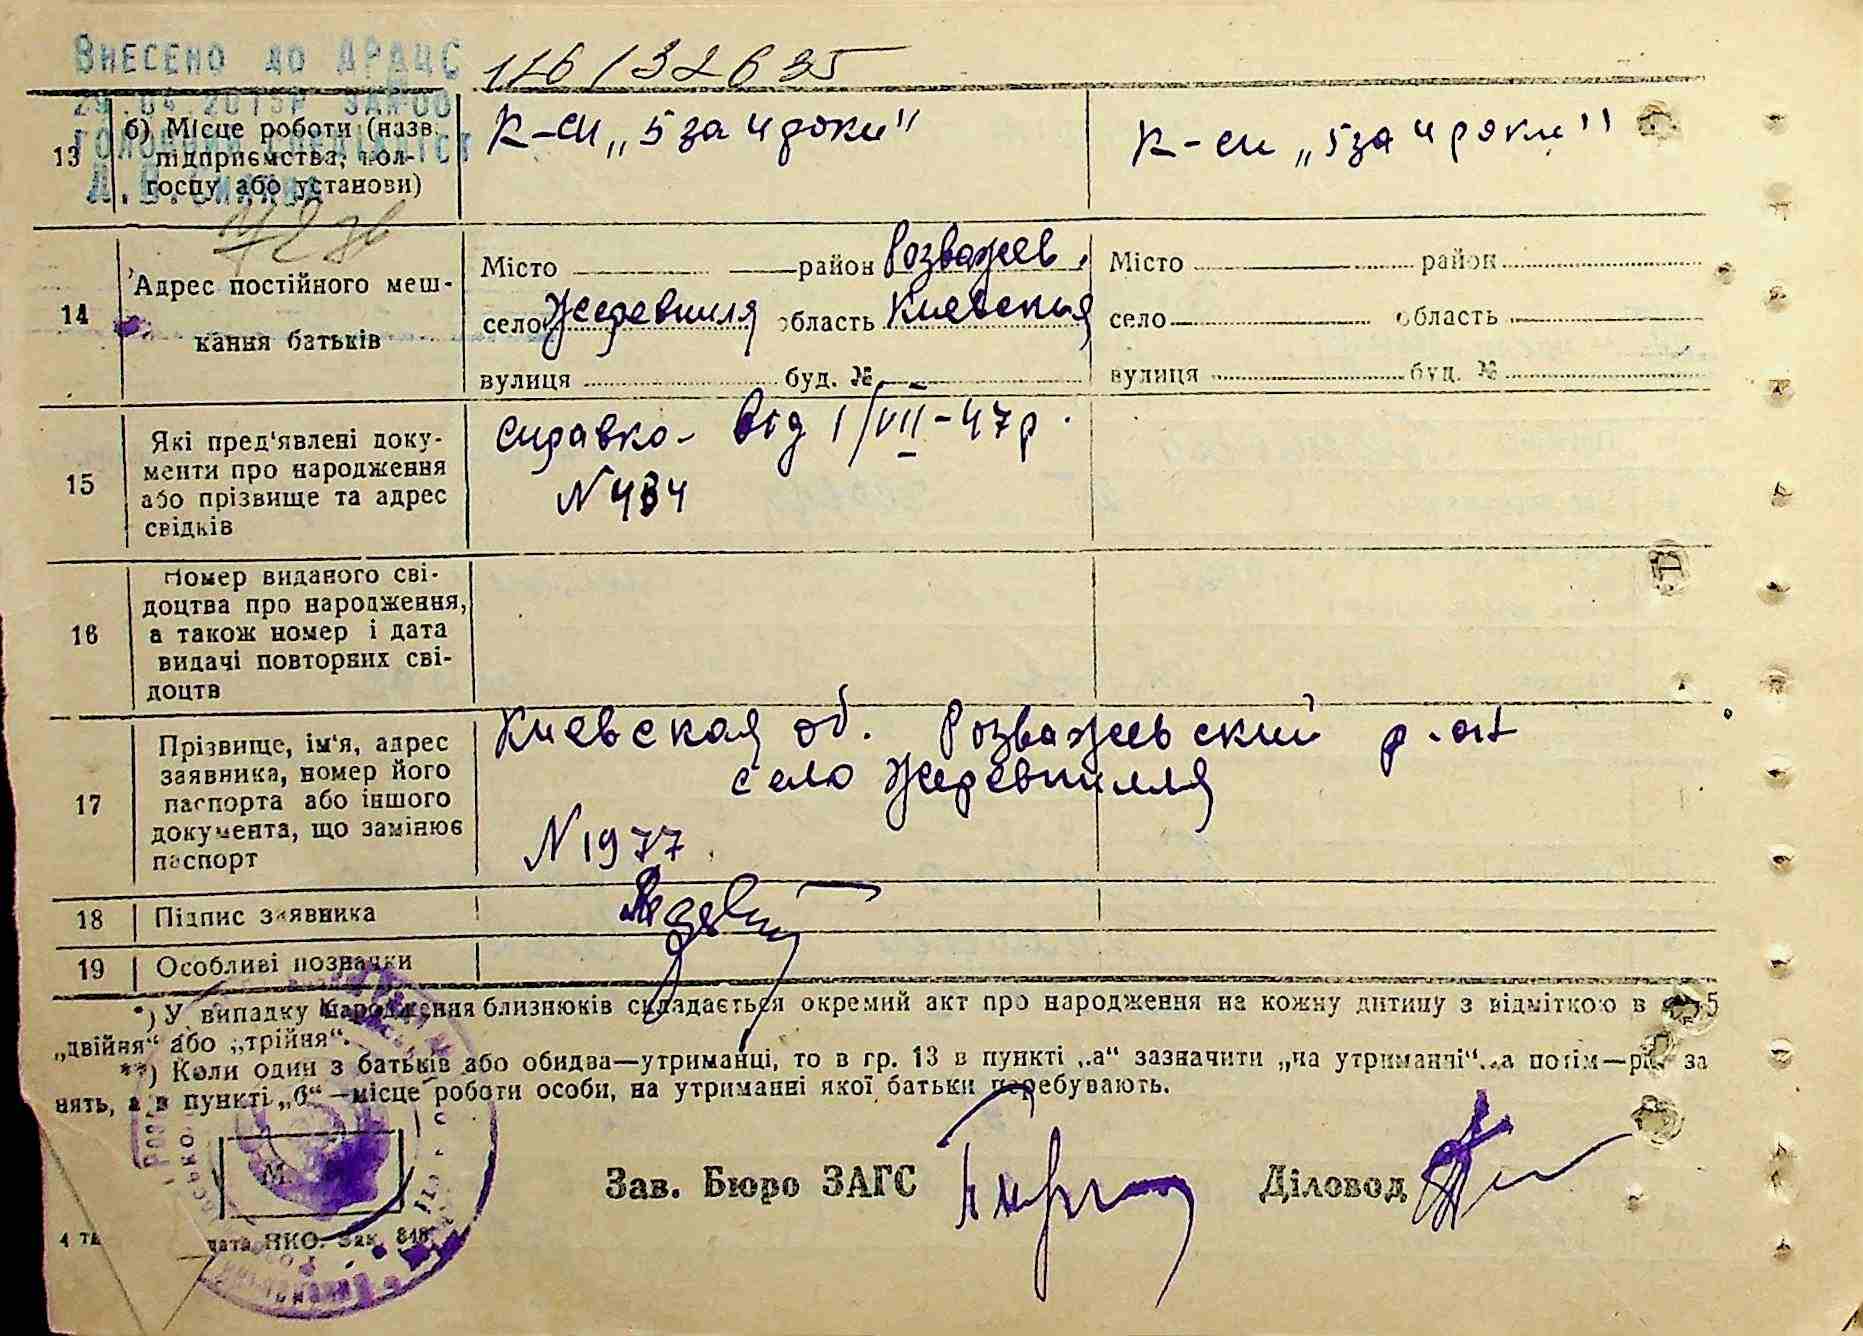 Внесено до ДРАЦС
116/32635
13
б) Місце роботи (назв.
підприємства, кол-
госпу або установи)
к-сп „5 за 4 роки"
к-сп „5 за 4 роки"
14
Адрес постійного меш-
кання батьків
Місто район Розважев.
село Жеревпиля область Киевская
вулиця буд. №
Місто район
село область
вулиця буд. №
15
Які пред'явлені доку-
менти про народження
або прізвище та адрес
свідків
справка від 1/VII-47 р.
N 434
16
Номер виданого сві-
доцтва про народження,
а також номер і дата
видачі повторних сві-
доцтв
17
Прізвище, ім'я, адрес
заявника, номер його
паспорта або іншого
документа, що замінює
паспорт
Киевская об. Розважевский р.
село Жеревпилля
N 1977
18
Підпис заявника
19
Особливі позначки
*) У випадку народження близнюків складається окремий акт про народження на кожну дитину з відміткою в 5
„двійня" або „трійня".
**) Коли один з батьків або обидва—утриманці, то в гр. 13 в пункті „а" зазначити „на утриманчі", а потім— за
нять, а в пункті „б"—місце роботи особи, на утриманні якої батьки перебувають.
М.
Зав. Бюро ЗАГС
Діловод
НКО. Зак. 848